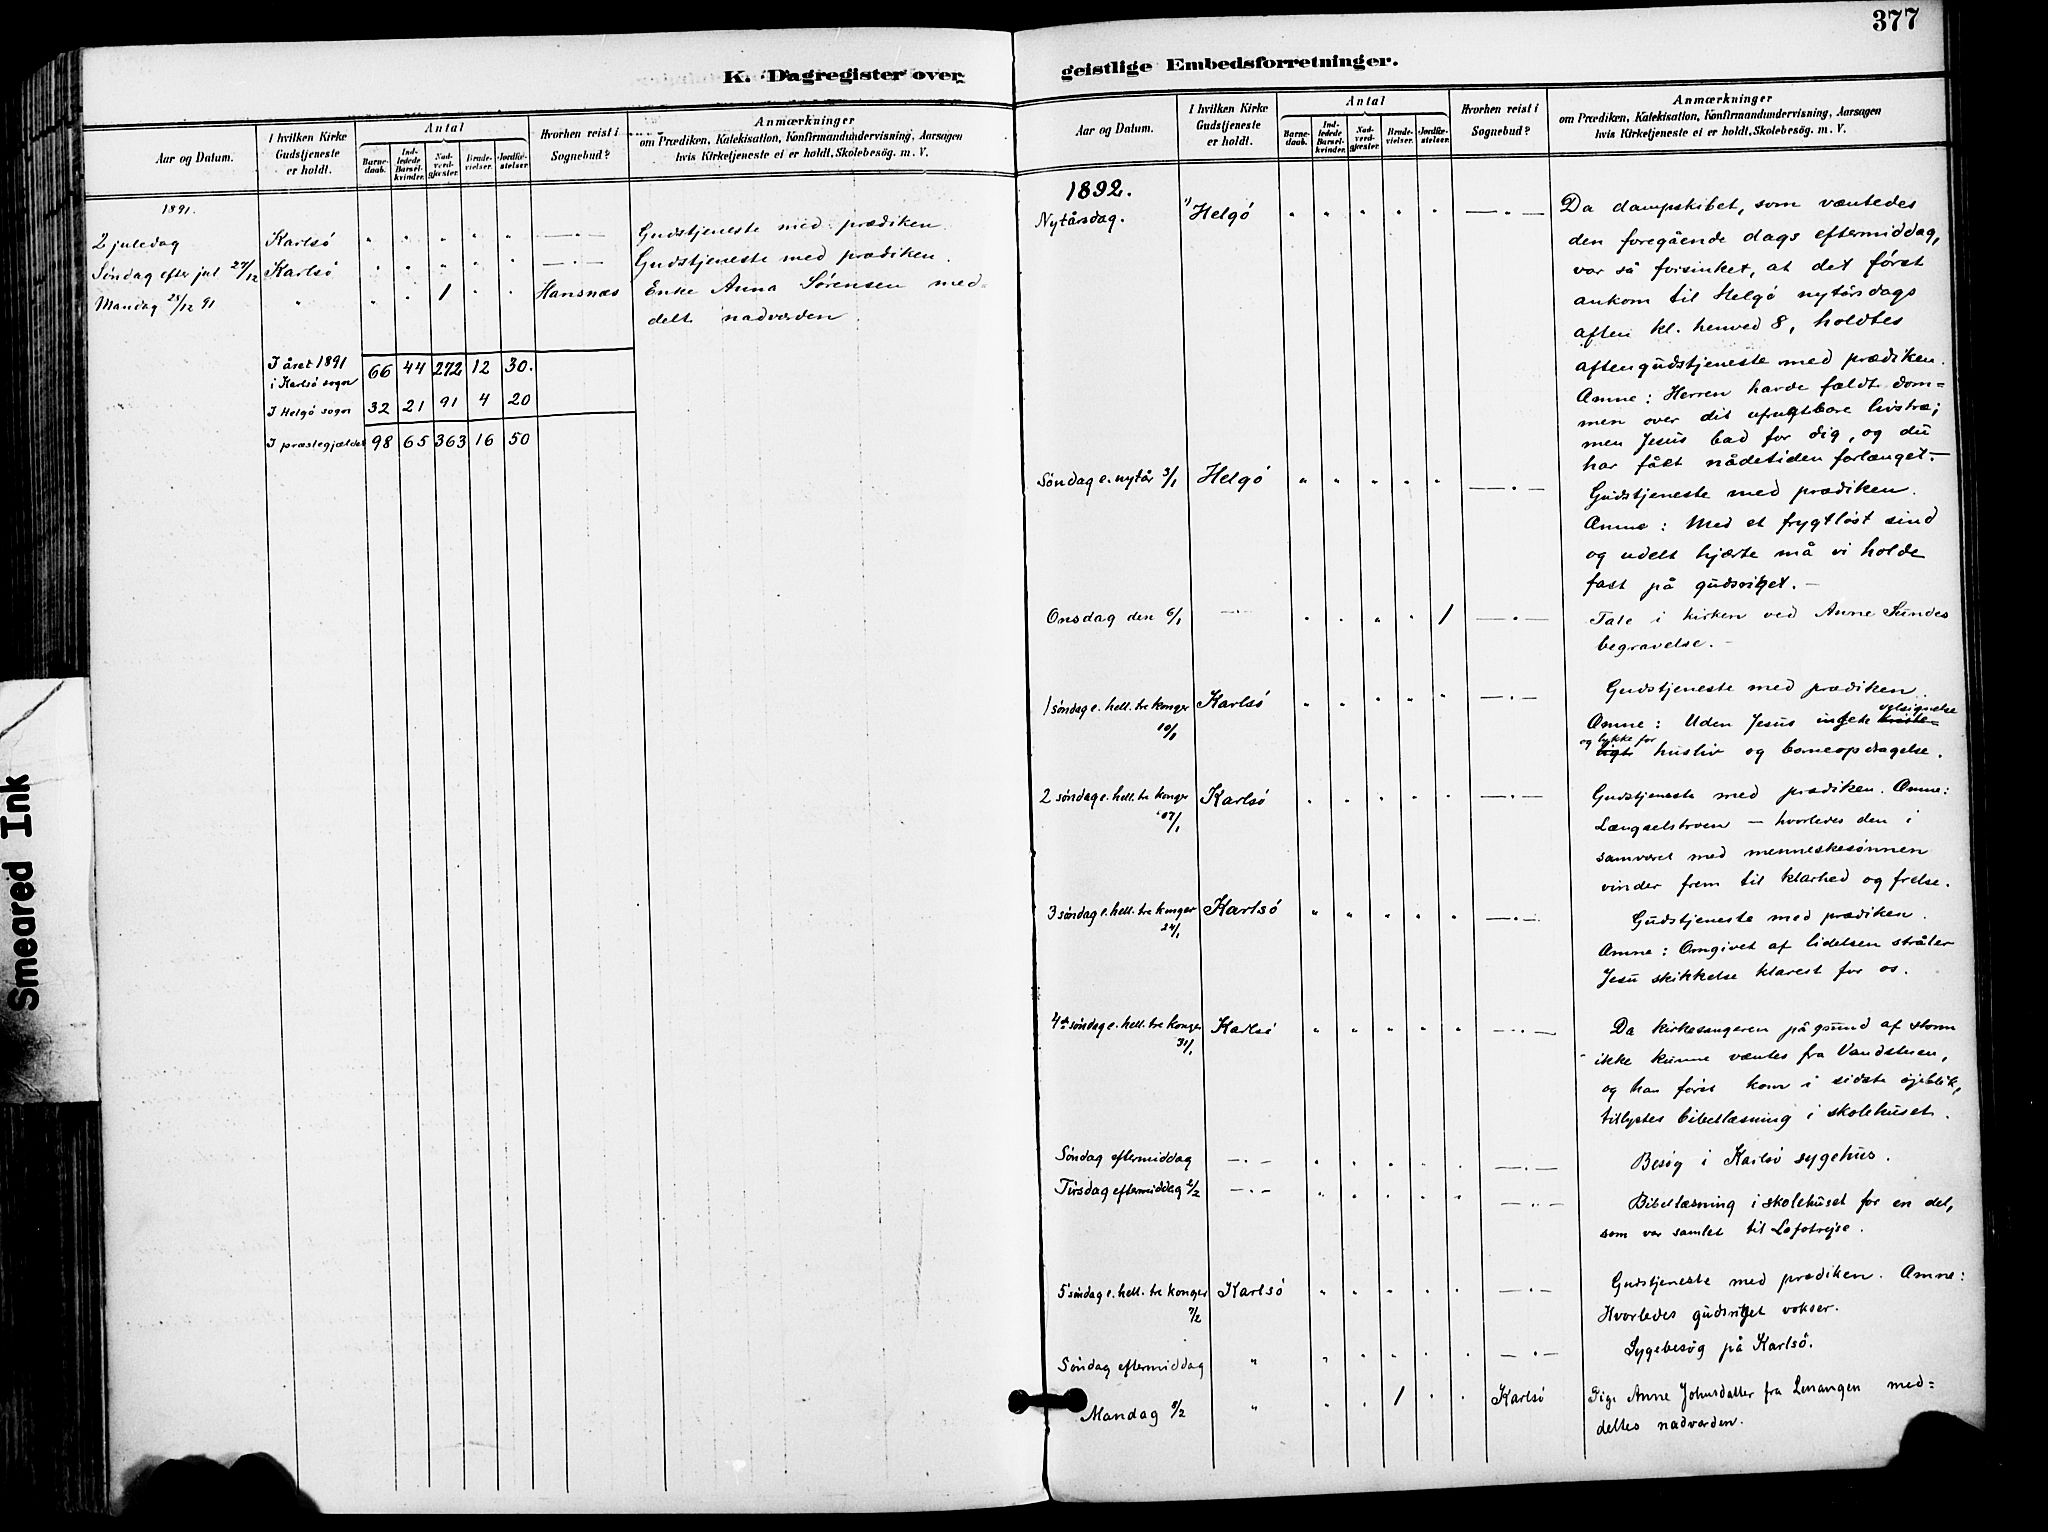 377
K. Dagregister over
Aar og Datum.
I hvilken Kirke Gudstjeneste er holdt.
Antal
Barnedaab.
Indledede Barselkvinder.
Nadverdgjæster.
Brudevielser.
Jordfæstelser.
Hvorhen reist i Sognebud?
Anmærkninger
om Prædiken, Katekisation, Konfirmandundervisning, Aarsagen
hvis Kirketjeneste ei er holdt, Skolebesög. m. V.
1891.
2 juledag Karlsö " " " " " —"— Gudstjeneste med prædiken.
Søndag efter jul 27/12 Karlsö " " " " " —"— Gudstjeneste med prædiken.
Mandag 28/12 91 " " " 1 " " Hansnæs Enke Anna Sørensen med-
delt nadverden
I året 1891
i Karlsö sogn 66 44 272 12 30.
I Helgö sogn 32 21 91 4 20
I præstegjældet 98 65 363 16 50
Smeared Ink
geistlige Embedsforretninger.
Aar og Datum.
I hvilken Kirke Gudstjeneste er holdt.
Antal
Barnedaab.
Indledede Barselkvinder.
Nadverdgjæster.
Brudevielser.
Jordfæstelser.
Hvorhen reist i Sognebud?
Anmærkninger
om Prædiken, Katekisation, Konfirmandundervisning, Aarsagen
hvis Kirketjeneste ei er holdt, Skolebesög. m. V.
1892.
Nytårsdag. Helgö " " " " " —"— Da dampskibet, som væntedes
den foregående dags eftermiddag,
var så forsinket, at det først
ankom til Helgö nytårsdags
aften kl. henved 8, holdtes
aftengudstjeneste med prædiken.
Æmne: Herren havde fældt dom-
men over dit ufrugtbare livstræ;
men Jesus bad for dig, og du
har fåt nådetiden forlænget.—
Søndag e. nytår 3/1 Helgö " " " " " —"— Gudstjeneste med prædiken.
Æmne: Med et frygtløst sind
og udelt hjærte må vi holde
fast på gudsriget.—
Onsdag den 6/1 —"— " " " " 1 —"— Tale i kirken ved Anne Sundes
begravelse.—
1 søndag e. hell. tre konger 10/1 Karlsö " " " " " —"— Gudstjeneste med prædiken.
Æmne: Uden Jesus ingen velsignelse
og lykke for husliv og børneopdragelse.
2 søndag e. hell. tre konger 17/1 Karlsö " " " " " —"— Gudstjeneste med prædiken. Æmne:
Længselstroen — hvorledes den i
samværet med menneskesønnen
vinder frem til klarhed og frelse.
3 søndag e. hell. tre konger 24/1 Karlsö " " " " " —"— Gudstjeneste med prædiken.
Æmne: Omgivet af lidelsen stråler
Jesu skikkelse klarest for os.
4de søndag e. hell. tre konger 31/1 Karlsö " " " " " —"— Da kirkesangeren på grund af storm
ikke kunne væntes fra Vandstuen,
og han først kom i sidste øjeblik,
tillystes bibellæsning i skolehuset.
Søndag eftermiddag —"— " " " " " —"— Besøg i Karlsö sygehus.
Tirsdag eftermiddag 2/2 —"— " " " " " —"— Bibellæsning i skolehuset for en del,
som var samlet til Lofotrejse.
5 søndag e. hell. tre konger 7/2 Karlsö " " " " " —"— Gudstjeneste med prædiken. Æmne:
Hvorledes gudsriget vokser.
Søndag eftermiddag " " " " " " —"— Sygebesøg på Karlsö.
Mandag 8/2 " " " 1 " " Karlsö Pige Anne Johnsdatter fra Lenangen med-
deltes nadverden.